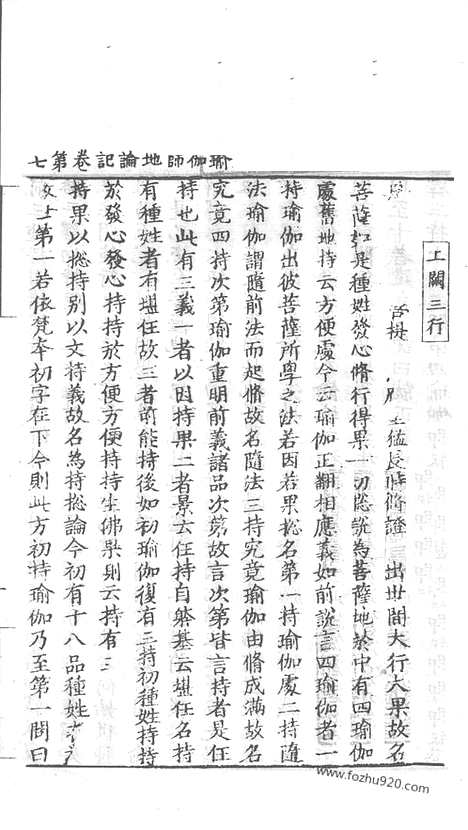 瑜伽師地論記卷第七
上闕三行
菩提 長時脩證 出世間大行大果故名
菩薩如是種姓發心脩行得果一切惣說為菩薩地於中有四瑜伽
處舊地持云方便處今云瑜伽正翻相應義如前說言四瑜伽者一
持瑜伽出彼菩薩所學之法若因若果惣名第一持瑜伽處二持隨
法瑜伽謂隨前法而起脩故名隨法三持究竟瑜伽由脩成滿故名
究竟四持次第瑜伽重明前義諸品次第故言次第皆言持者是任
持也此有三義一者以因持果二者景云任持自躰基云堪任名持
有種姓者有堪任故三者前能持後如初瑜伽復有三持初種姓持持
於發心發心持持於方便方便持持生佛果則云持有三
持果以惣持別以文持義故名為持惣論今初有十八品種姓
第一若依梵本初字在下今則此方初持瑜伽乃至第一問曰
www.fozhu920.com